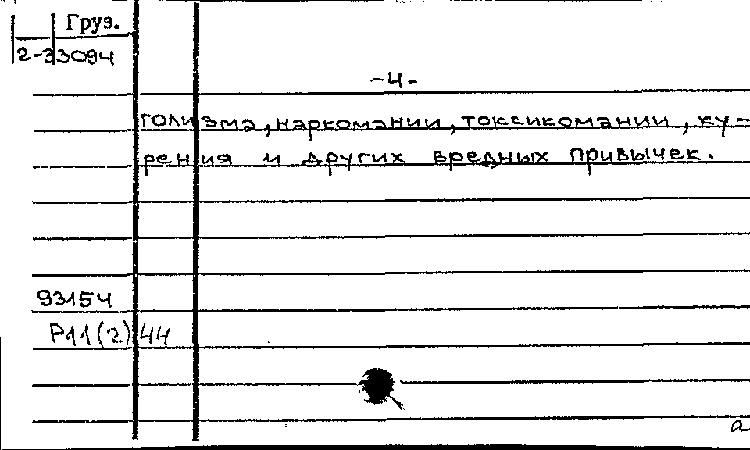 Груз.
2-33094
-4-
голизма, наркомании, токсикомании, ку-
рения и других вредных привычек.
93154
Р11(2)44
а